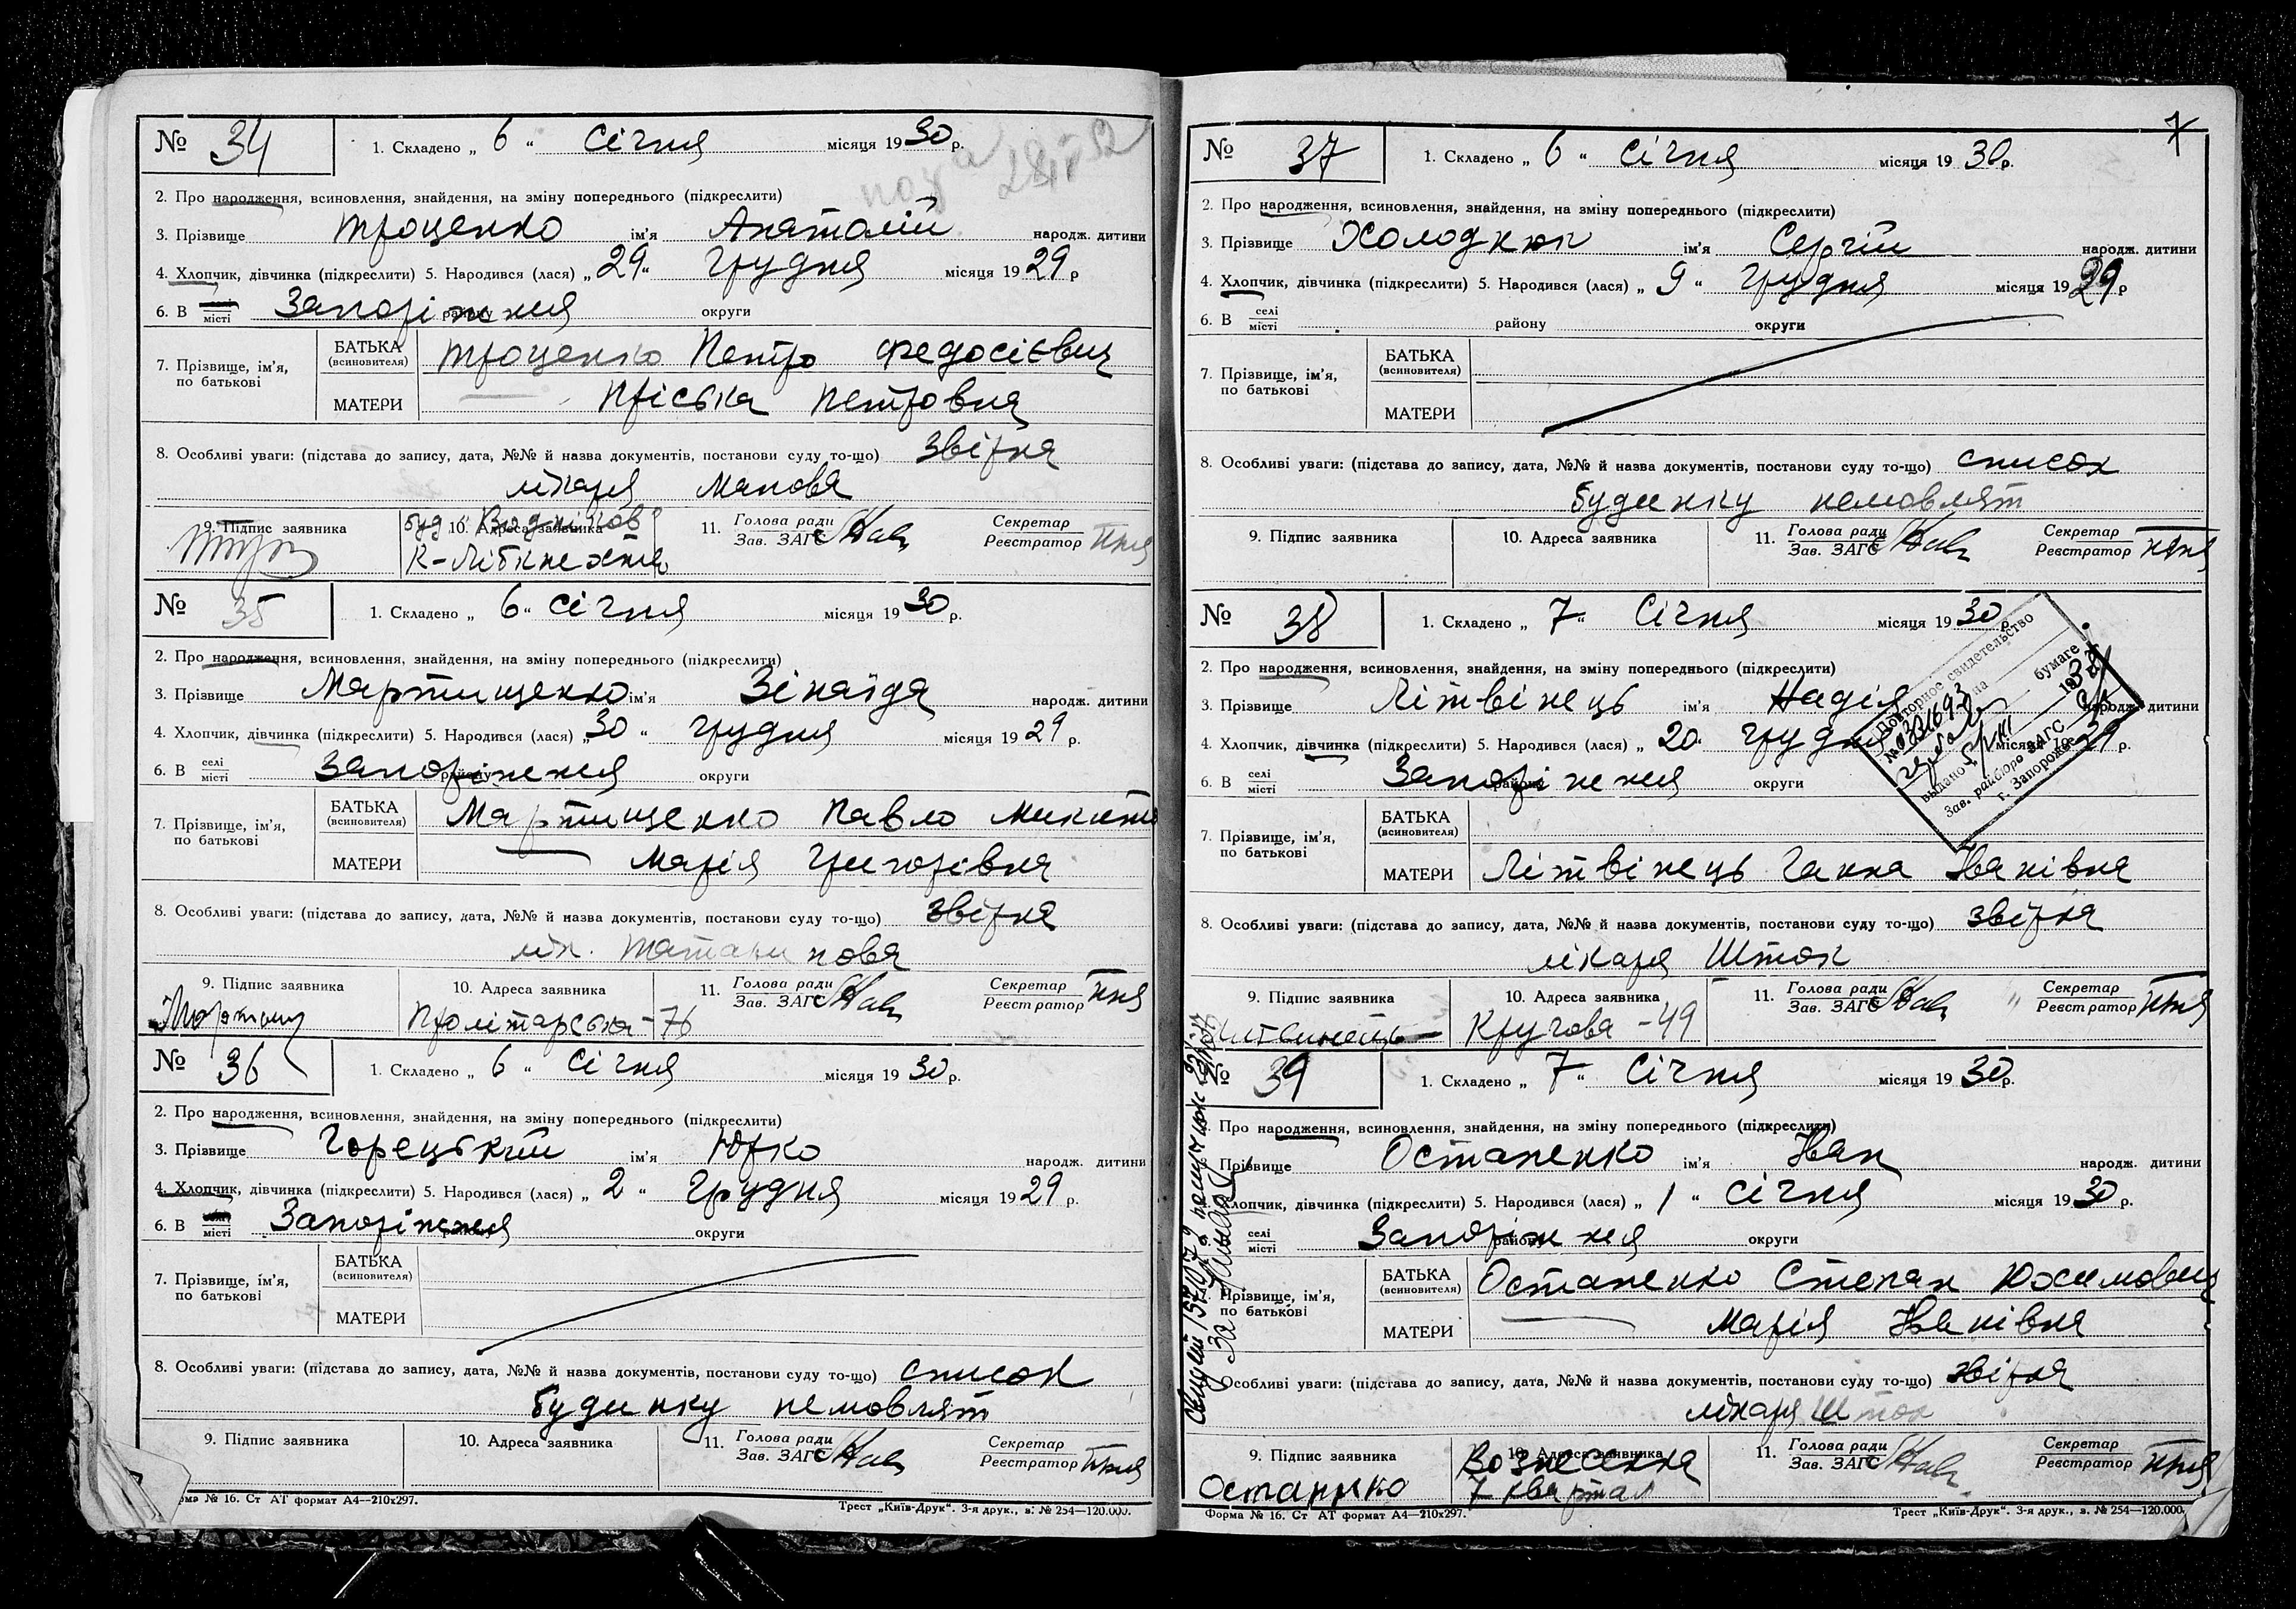 № 34
1. Складено „ 6 “ Січня місяця 19 30 р.
2. Про народження, всиновлення, знайдення, на зміну попереднього (підкреслити)
3. Прізвище Троценко ім'я Анатолій народж. дитини
4. Хлопчик, дівчинка (підкреслити) 5. Народився (лася) „ 29 “ Грудня місяця 19 29 р
6. В селі місті Запоріжжя району округи
7. Прізвище, ім'я, по батькові
БАТЬКА (всиновителя) Троценко Петро Федосієвич
МАТЕРИ Пріська Петровна
8. Особливі уваги: (підстава до запису, дата, №№ й назва документів, постанови суду то-що) Звірка
лікаря
9. Підпис заявника
10. Адреса заявника
К-Лібкнехта
11. Голова ради Зав. ЗАГС
Секретар Реєстратор
№ 35
1. Складено „ 6 “ Січня місяця 19 30 р.
2. Про народження, всиновлення, знайдення, на зміну попереднього (підкреслити)
3. Прізвище Мартищенко ім'я Зінаїда народж. дитини
4. Хлопчик, дівчинка (підкреслити) 5. Народився (лася) „ 30 “ Грудня місяця 19 29 р.
6. В селі місті Запоріжжя району округи
7. Прізвище, ім'я, по батькові
БАТЬКА (всиновителя) Мартищенко Павло Микито
МАТЕРИ Марія Григорівна
8. Особливі уваги: (підстава до запису, дата, №№ й назва документів, постанови суду то-що) Звірка
лік.
9. Підпис заявника
10. Адреса заявника
Пролітарська-76
11. Голова ради Зав. ЗАГС
Секретар Реєстратор
№ 36
1. Складено „ 6 “ Січня місяця 19 30 р.
2. Про народження, всиновлення, знайдення, на зміну попереднього (підкреслити)
3. Прізвище Горецький ім'я Юрко народж. дитини
4. Хлопчик, дівчинка (підкреслити) 5. Народився (лася) „ 2 “ Грудня місяця 19 29 р.
6. В селі місті Запоріжжя району округи
7. Прізвище, ім'я, по батькові
БАТЬКА (всиновителя)
МАТЕРИ
8. Особливі уваги: (підстава до запису, дата, №№ й назва документів, постанови суду то-що) список
будинку немовлят
9. Підпис заявника
10. Адреса заявника
11. Голова ради Зав. ЗАГС
Секретар Реєстратор
рма № 16. Ст АТ формат А4—210х297.
Трест „Київ-Друк“. 3-я друк., в. № 254—120.000.
7
№ 37
1. Складено „ 6 “ Січня місяця 19 30 р.
2. Про народження, всиновлення, знайдення, на зміну попереднього (підкреслити)
3. Прізвище Холоднюк ім'я Сергій народж. дитини
4. Хлопчик, дівчинка (підкреслити) 5. Народився (лася) „ 9 “ Грудня місяця 19 29 р
6. В селі місті району округи
7. Прізвище, ім'я, по батькові
БАТЬКА (всиновителя)
МАТЕРИ
8. Особливі уваги: (підстава до запису, дата, №№ й назва документів, постанови суду то-що) список
будинку немовлят
9. Підпис заявника
10. Адреса заявника
11. Голова ради Зав. ЗАГС
Секретар Реєстратор
№ 38
1. Складено „ 7 “ Січня місяця 19 30 р.
2. Про народження, всиновлення, знайдення, на зміну попереднього (підкреслити)
3. Прізвище Літвінець ім'я Надія народж. дитини
4. Хлопчик, дівчинка (підкреслити) 5. Народився (лася) „ 20 “ Грудня місяця 19 29 р.
6. В селі місті Запоріжжя району округи
Повторное свидетельство
на бумаге
выдано
Зав. райбюро ЗАГС
г. Запорожье
7. Прізвище, ім'я, по батькові
БАТЬКА (всиновителя)
МАТЕРИ Літвінець Ганна Іванівна
8. Особливі уваги: (підстава до запису, дата, №№ й назва документів, постанови суду то-що) звірка
лікаря Шток
9. Підпис заявника
10. Адреса заявника
Кругова -49
11. Голова ради Зав. ЗАГС
Секретар Реєстратор
№ 39
1. Складено „ 7 “ Січня місяця 19 30 р.
Про народження, всиновлення, знайдення, на зміну попереднього (підкреслити)
Прізвище Остапенко ім'я Іван народж. дитини
Хлопчик, дівчинка (підкреслити) 5. Народився (лася) „ 1 “ Січня місяця 19 30 р.
селі місті Запоріжжя району округи
Прізвище, ім'я, по батькові
БАТЬКА (всиновителя) Остапенко Степан Юхимович
МАТЕРИ Марія Іванівна
Особливі уваги: (підстава до запису, дата, №№ й назва документів, постанови суду то-що) звірка
лікаря Шток
9. Підпис заявника
Остапенко
10. Адреса заявника
Вознесенка
7 квартал
11. Голова ради Зав. ЗАГС
Секретар Реєстратор
Форма № 16. Ст АТ формат А4—210х297.
Трест „Київ-Друк“. 3-я друк., в. № 254—120.000.